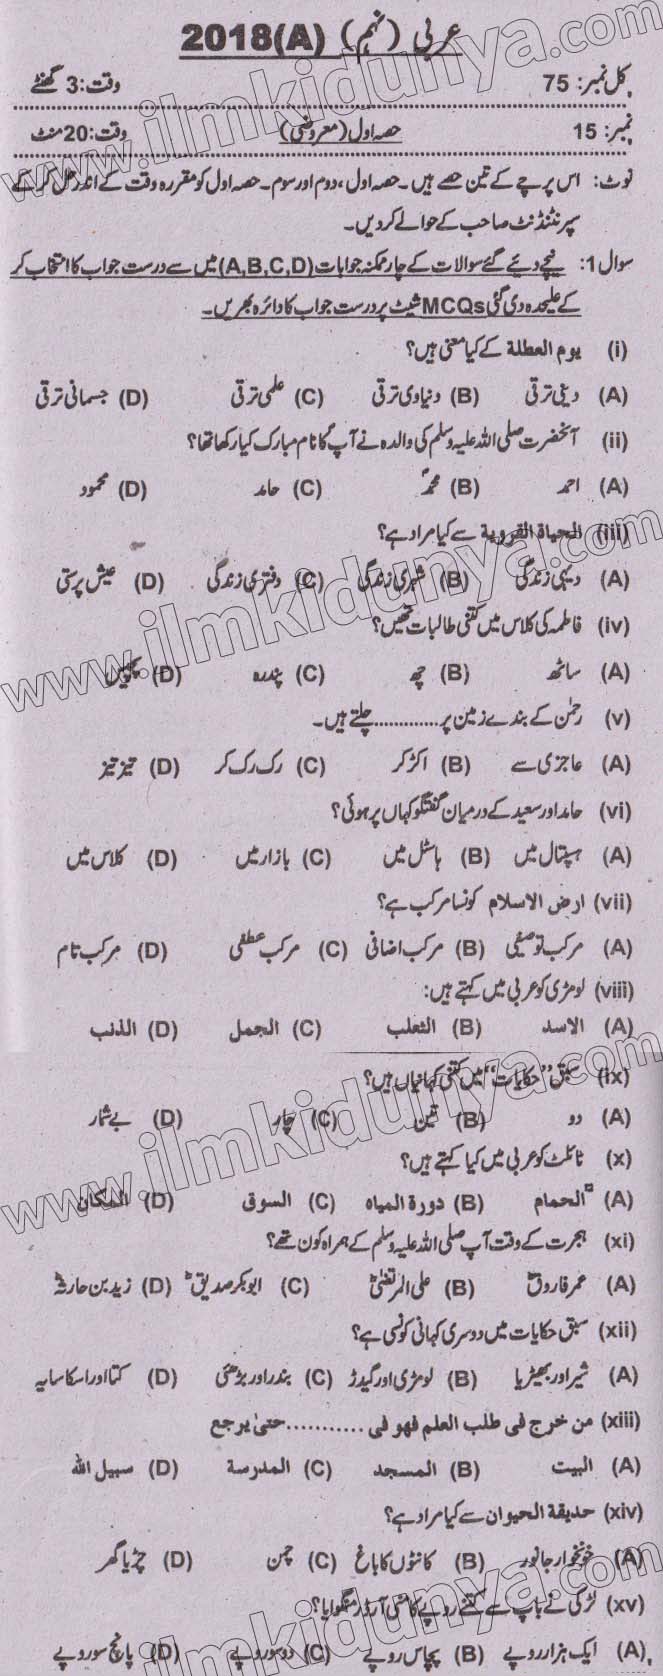 عربی (نہم) 2018(A)
کل نمبر: 75 وقت: 3 گھنٹے
نمبر: 15 حصہ اول (معروضی) وقت: 20 منٹ
نوٹ: اس پرچے کے تین حصے ہیں۔ حصہ اول، دوم اور سوم۔ حصہ اول کو مقررہ وقت کے اندر حل کر کے
سپرنٹنڈنٹ صاحب کے حوالے کر دیں۔
سوال 1: نیچے دیئے گئے سوالات کے چار ممکنہ جوابات (A,B,C,D) میں سے درست جواب کا انتخاب کر
کے علیحدہ دی گئی MCQs شیٹ پر درست جواب کا دائرہ بھریں۔
(i) یوم العطلة کے کیا معنی ہیں؟
(A) دینی ترقی (B) دنیاوی ترقی (C) علمی ترقی (D) جسمانی ترقی
(ii) آنحضرت صلی اللہ علیہ وسلم کی والدہ نے آپؐ کا نام مبارک کیا رکھا تھا؟
(A) احمد (B) محمدؐ (C) حامد (D) محمود
(iii) الحیاة القرویة سے کیا مراد ہے؟
(A) دیہی زندگی (B) شہری زندگی (C) دفتری زندگی (D) عیش پرستی
(iv) فاطمہ کی کلاس میں کتنی طالبات تھیں؟
(A) ساٹھ (B) چھ (C) پندرہ (D)
(v) رحمٰن کے بندے زمین پر............ چلتے ہیں۔
(A) عاجزی سے (B) اکڑ کر (C) رک رک کر (D) تیز تیز
(vi) حامد اور سعید کے درمیان گفتگو کہاں پر ہوئی؟
(A) ہسپتال میں (B) ہاسٹل میں (C) بازار میں (D) کلاس میں
(vii) ارض الاسلام کونسا مرکب ہے؟
(A) مرکب توصیفی (B) مرکب اضافی (C) مرکب عطفی (D) مرکب تام
(viii) لومڑی کو عربی میں کہتے ہیں:
(A) الاسد (B) الثعلب (C) الجمل (D) الذئب
(ix) سبق "حکایات" میں کتنی کہانیاں ہیں؟
(A) دو (B) تین (C) چار (D) بے شمار
(x) ٹائلٹ کو عربی میں کیا کہتے ہیں؟
(A) الحمام (B) دورة المیاه (C) السوق (D) المکان
(xi) ہجرت کے وقت آپ صلی اللہ علیہ وسلم کے ہمراہ کون تھے؟
(A) عمر فاروقؓ (B) علی المرتضیٰؓ (C) ابوبکر صدیقؓ (D) زید بن حارثہؓ
(xii) سبق حکایات میں دوسری کہانی کونسی ہے؟
(A) شیر اور بھیڑیا (B) لومڑی اور گیدڑ (C) بندر اور بڑھئی (D) کتا اور اسکا سایہ
(xiii) من خرج فی طلب العلم فهو فی ........... حتیٰ یرجع
(A) البیت (B) المسجد (C) المدرسة (D) سبیل اللہ
(xiv) حدیقة الحیوان سے کیا مراد ہے؟
(A) خونخوار جانور (B) کانٹوں کا باغ (C) چمن (D) چڑیا گھر
(xv) لڑکی نے باپ سے کتنے روپے کا منی آرڈر منگوایا؟
(A) ایک ہزار روپے (B) پچاس روپے (C) دو سو روپے (D) پانچ سو روپے
www.ilmkidunya.com
www.ilmkidunya.com
www.ilmkidunya.com